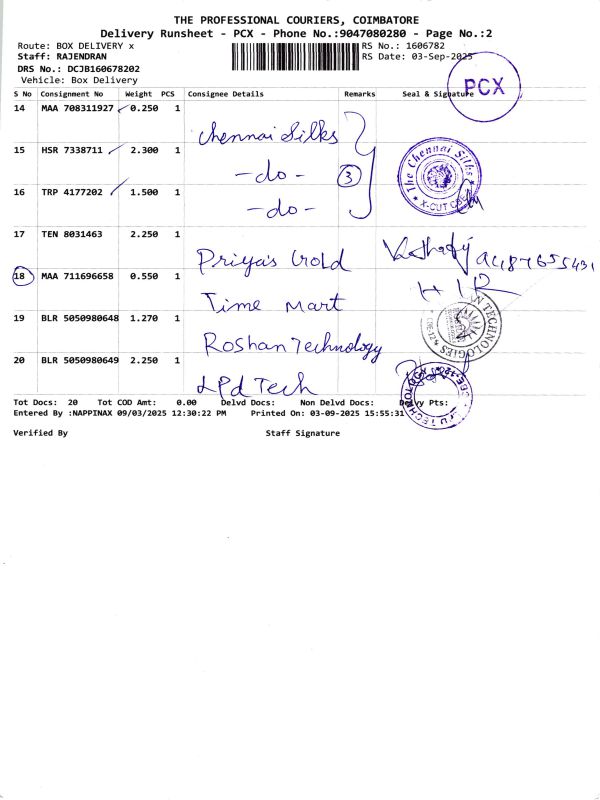 THE PROFESSIONAL COURIERS, COIMBATORE
Delivery Runsheet - PCX - Phone No.:9047080280 - Page No.:2
Route: BOX DELIVERY x
RS No.: 1606782
Staff: RAJENDRAN
RS Date: 03-Sep-2025
DRS No.: DCJB160678202
Vehicle: Box Delivery
PCX
S No Consignment No Weight PCS Consignee Details Remarks Seal & Signature
14 MAA 708311927 0.250 1
Chennai Silks
15 HSR 7338711 2.300 1
-do- 3
The Chennai Silks
X-CUT
16 TRP 4177202 1.500 1
-do-
17 TEN 8031463 2.250 1
Priya's Gold
18 MAA 711696658 0.550 1
H I R
Time Mart
19 BLR 5050980648 1.270 1
TECHNOLOGIES
Roshan Technology
20 BLR 5050980649 2.250 1
LPd Tech
Tot Docs: 20 Tot COD Amt: 0.00 Delvd Docs: Non Delvd Docs: Delvy Pts:
Entered By :NAPPINAX 09/03/2025 12:30:22 PM Printed On: 03-09-2025 15:55:31
Verified By Staff Signature